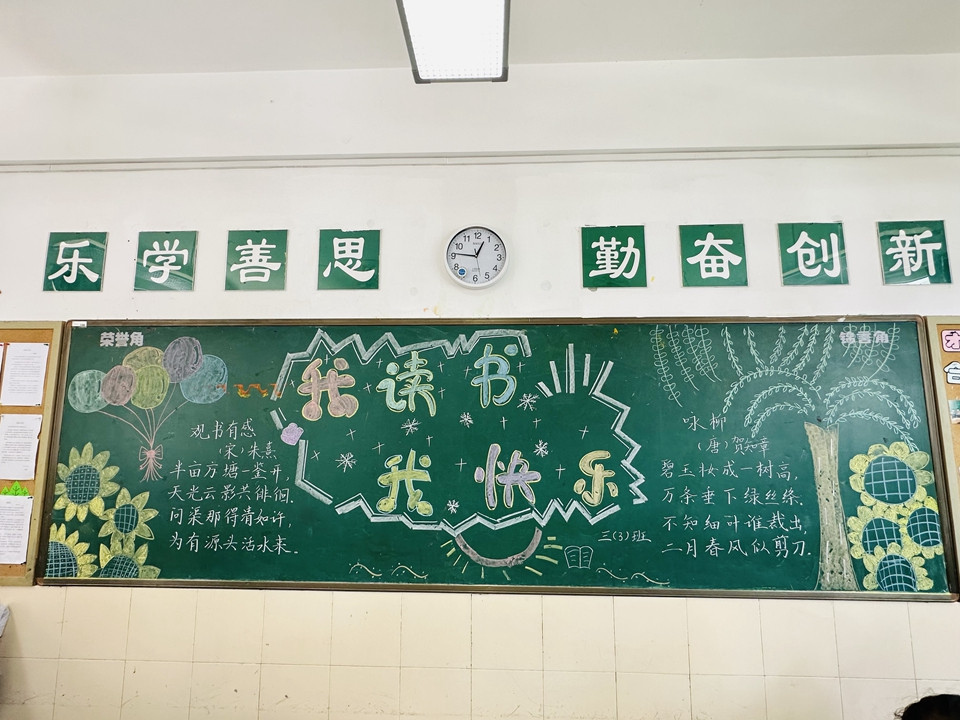 乐 学 善 思
勤 奋 创 新
荣誉角
锦言角
我读书
我快乐
三(3)班
观书有感
(宋)朱熹
半亩方塘一鉴开,
天光云影共徘徊,
问渠那得清如许,
为有源头活水来。
咏柳
(唐)贺知章
碧玉妆成一树高,
万条垂下绿丝绦.
不知细叶谁裁出,
二月春风似剪刀.
12
1
2
3
4
5
6
8
9
10
11